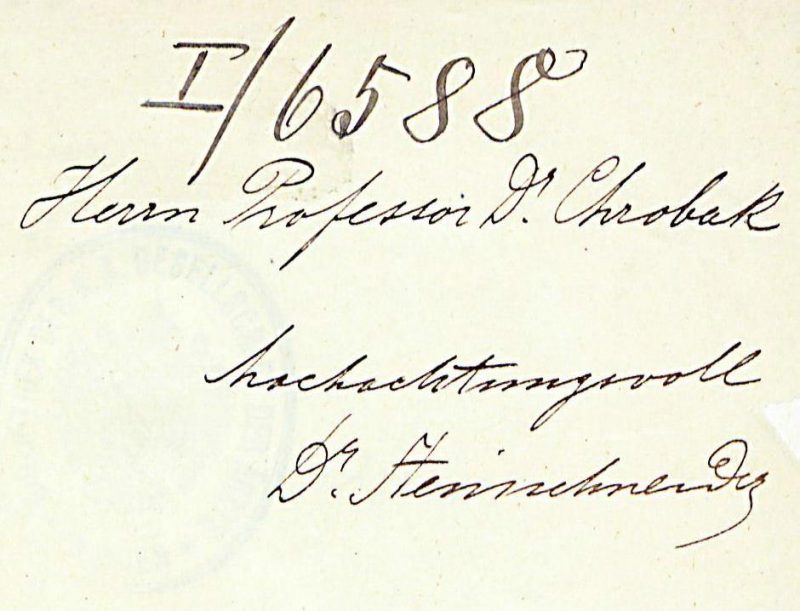 I/6588
Herrn Professor Dr. Chrobak
hochachtungsvoll
Dr. Steinschneider